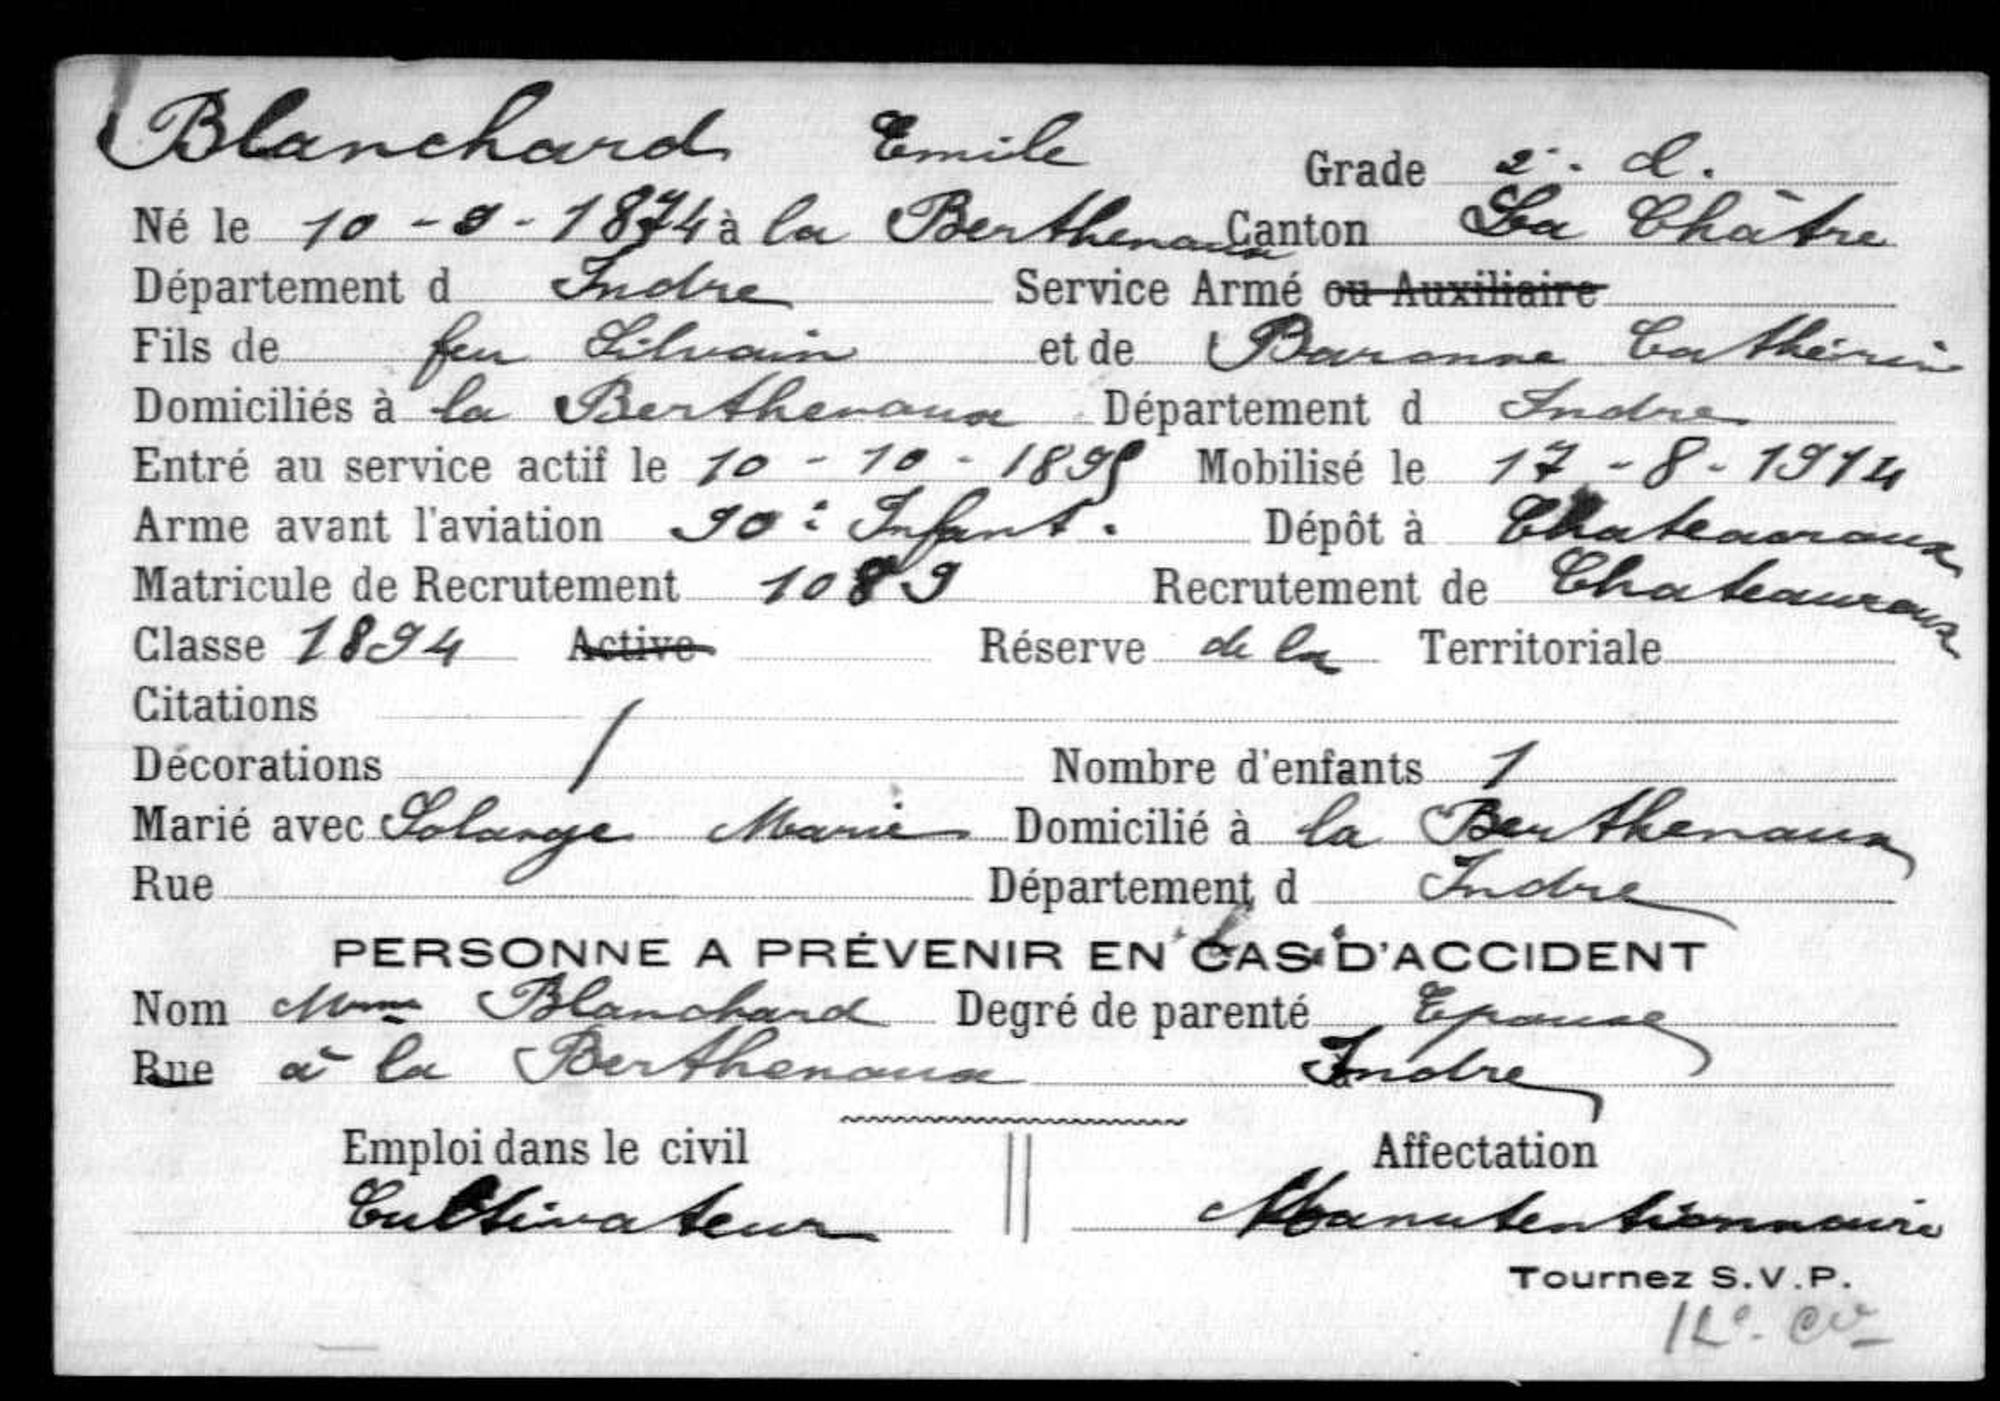 Blanchard Emile Grade 2e. cl.
Né le 10 - 9 - 1874 à la Berthenoux Canton La Châtre
Département d Indre Service Armé ou Auxiliaire
Fils de feu Silvain et de Baronne Cathérine
Domiciliés à la Berthenoux Département d Indre
Entré au service actif le 10 - 10 - 1895 Mobilisé le 17 - 8 - 1914
Arme avant l'aviation 90e Infant. Dépôt à Chateauroux
Matricule de Recrutement 1089 Recrutement de Chateauroux
Classe 1894 Active Réserve de la Territoriale
Citations /
Décorations Nombre d'enfants 1
Marié avec Solange Marie Domicilié à la Berthenoux
Rue Département d Indre
PERSONNE A PRÉVENIR EN CAS D'ACCIDENT
Nom Mme Blanchard Degré de parenté Epouse
Rue à la Berthenoux Indre
Emploi dans le civil Affectation
Cultivateur Manutentionnaire
Tournez S.V.P.